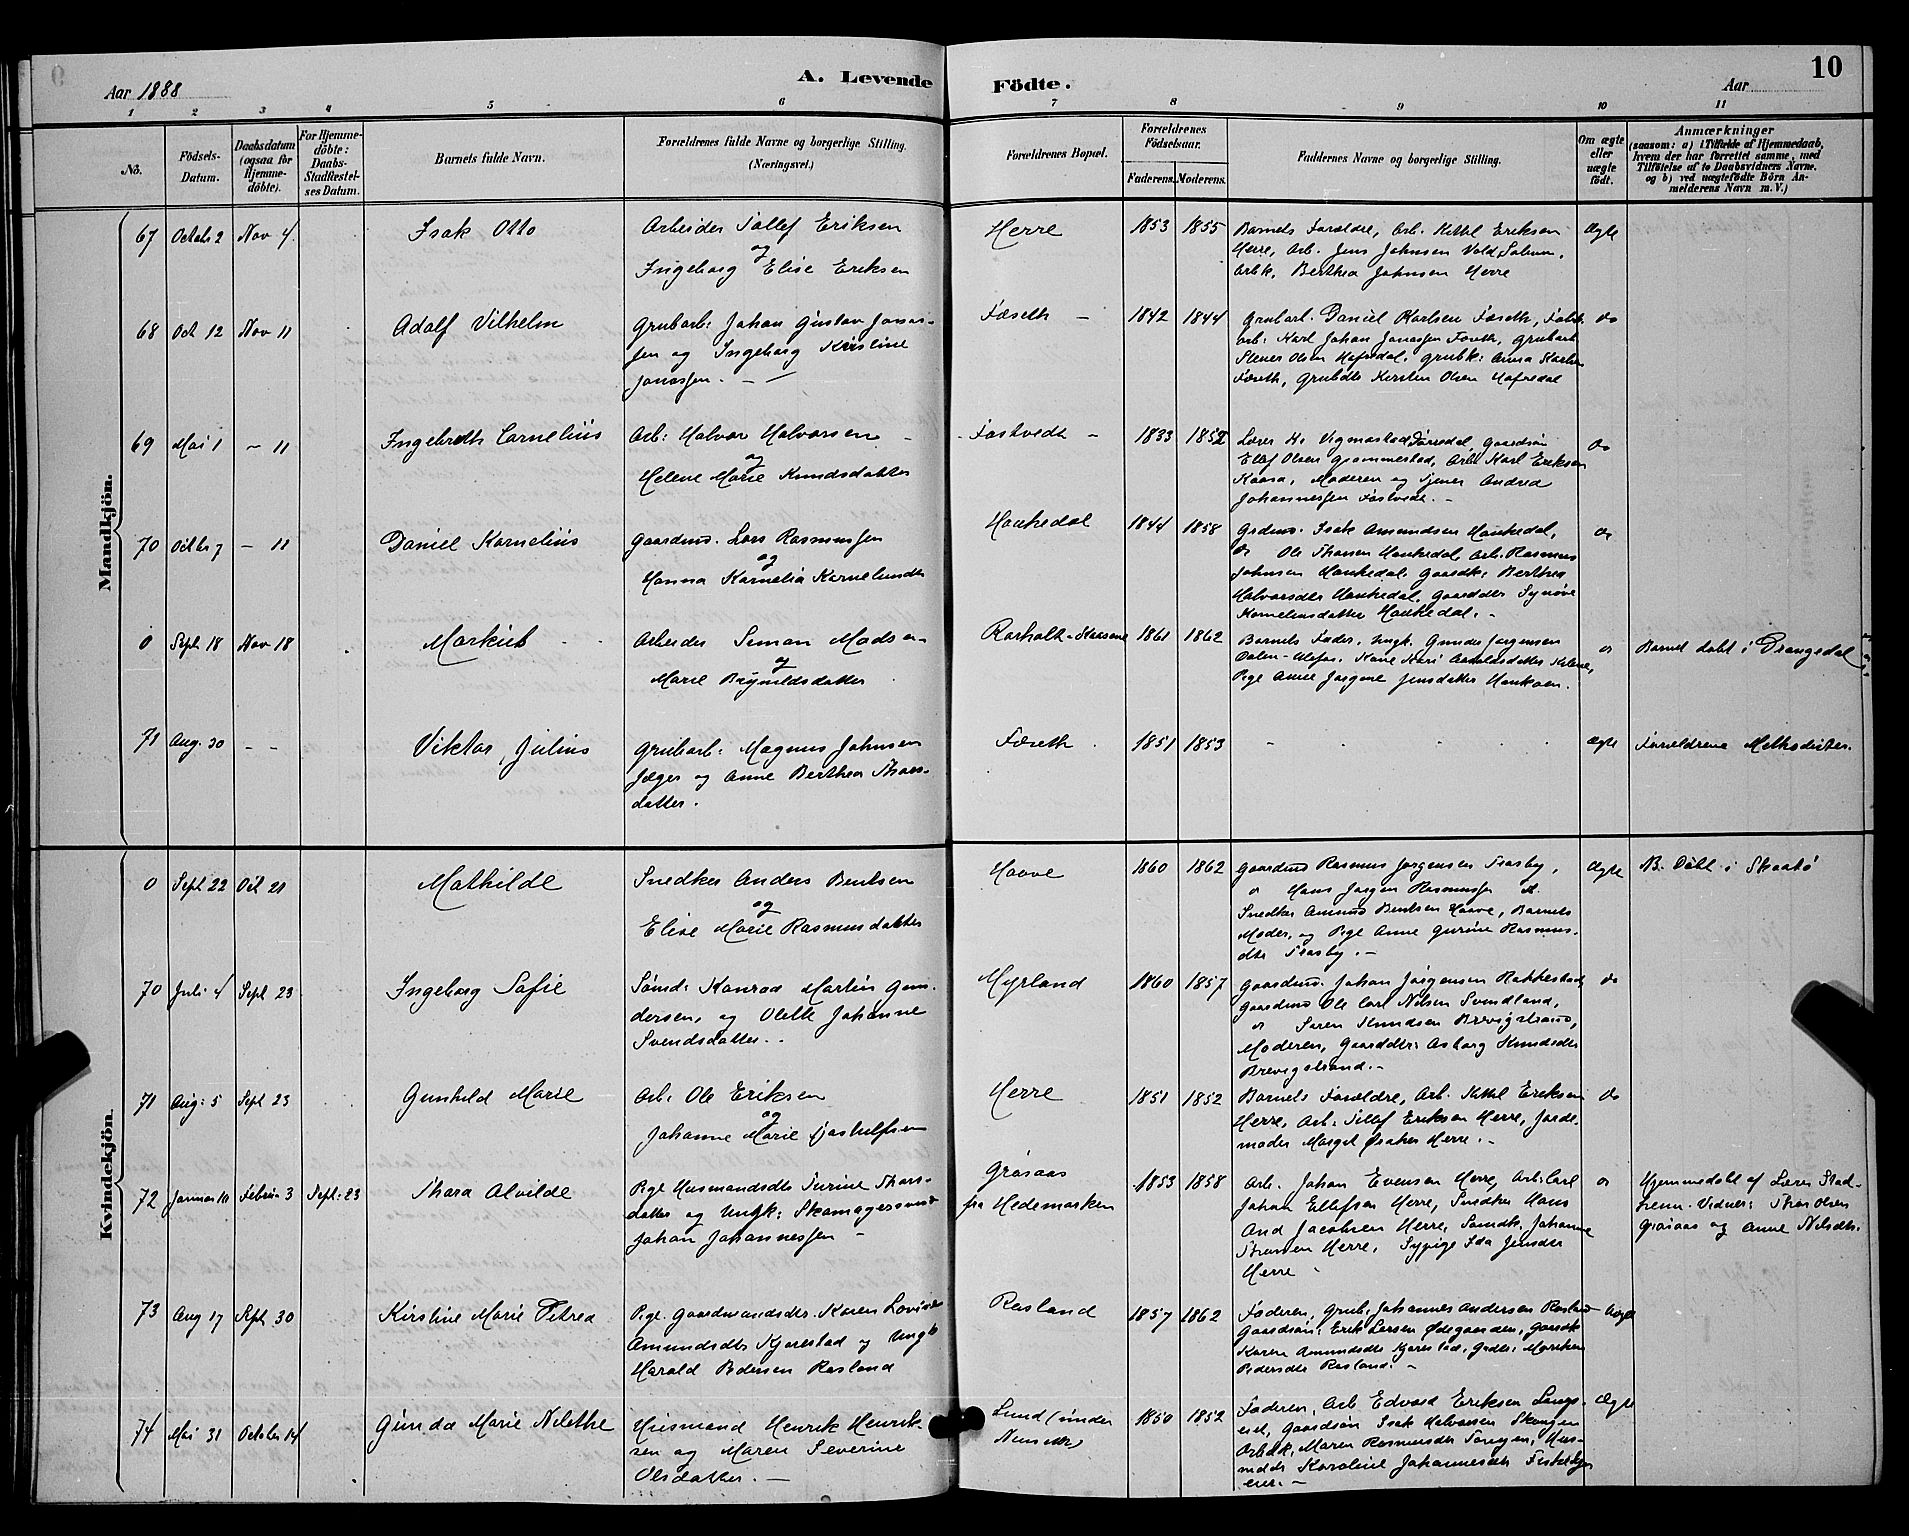 Aar 1888
A. Levende
Födte.
Aar
10
1 2 3 4 5 6 7 8 9 10 11
No.
Födsels-
Datum.
Daabsdatum
(ogsaa for
Hjemme-
döbte).
For Hjemme-
döbte:
Daabs-
Stadfæstel-
ses Datum.
Barnets fulde Navn.
Forældrenes fulde Navne og borgerlige Stilling.
(Næringsvei.)
Forældrenes Bopæl.
Forældrenes
Födselsaar.
Faderens. Moderens.
Faddernes Navne og borgerlige Stilling.
Om ægte
eller
uægte
født.
Anmærkninger
(saasom: a) i Tilfælde af Hjemmedaab,
hvem der har forrettet samme, med
Tilföielse af to Daabsvidners Navne.
og b) ved uægtefödte Börn An-
melderens Navn m. V.)
Mandkjön.
67 Octob: 2 Nov 4
Isak Otto
Arbeider Tollef Eriksen
og
Ingeborg Elise Eriksen
Herre
1853 1855
Barnets Foreldre, Arb. Kittil Eriksen
Herre, Arb. Jens Johnsen Vold,
Arbk. Berthea Johnsen Herre
Ægte
68 Oct 12 Nov 11
Adolf Vilhelm
Grubarb: Johan Gustav Jonas-
sen og Ingeborg Kirstine
Jonassen.
Foseth
1842 1844
Grubarb. Daniel Karlsen Foseth,
arb: Karl Johan Jonassen Foseth, Grubarb
Stener Olsen Hafredal, grubk: Anna Karlsen
Foseth, Grubdtr Kirsten Olsen Hafredal
do
69 Mai 1 - 11
Ingebreth Cornelius
Arb: Halvor Halvorsen
og
Helene Marie Knudsdatter
Fostvedt
1833 1852
Lærer H. Vigmostad, Gaardsön
Ellef Olsen Grommestad, Arb. Karl Eriksen
Kaasa, Moderen og Tjener Andrea
Johannessen Fostvedt.
do
70 Octbr 7 - 11
Daniel Kornelius
Gaardms. Lars Rasmussen
og
Hanna Kornelia Kornelinsdtr
Hankedal
1844 1858
Grdms. Isak Amundsen Hankedal,
do Ole Thorsen Hankedal, Arb. Rasmus
Johnsen Hankedal, Gaardk: Berthea
Halvorsdtr Hankedal, Gaarddtr Synøve
Korneliusdatter Hankedal.
do
0 Sept 18 Nov 18
Markus
Arbeider Simon Madsen
og
Marie Brynildsdatter
Rorholt-Kaasene
1861 1862
Barnets Fader, Ungk. Gunder Jørgensen
Dalen-Ulefos, Kone Kari Aanoldsdatter
Pige Anne Jørgine Jensdatter
do
Barnet döbt i Drangedal
71 Aug. 30 - -
Viktor Julius
Grubarb: Magnus Johnsen
Jæger og Anne Berthea Thors-
datter.
Foseth
1851 1853
Ægte
Foreldrene Methodister.
Kvindekjön.
0 Sept 22 Oct 21
Mathilde
Snedker Anders Bentsen
og
Elise Marie Rasmusdatter
Haave
1860 1862
Gaardms Rasmus Jørgensen Trosby,
do Hans Jørgen Rasmussen do.
Snedker Amund Bentsen Haave, Barnets
Moder, og Pige Anne Gurine Rasmus-
dtr Trosby.
Ægte
B. Döbt i Skaatö
70 Juli 4 Sept 23
Ingeborg Sofie
Sömd: Konrad Martin Gun-
dersen, og Olette Johanne
Svendsdatter.
Myrland
1860 1857
Gaardms. Johan Jörgensen Rakkestad
Gaardms Ole Carl Nilsen Svindland,
do Søren Knudsen Brevigstrand,
Moderen, Gaarddtr: Asborg Knudsdtr
Brevigstrand.
do
71 Aug: 5 Sept 23
Gunhild Marie
Arb: Ole Eriksen
og
Johanne Marie
Herre
1851 1852
Barnets Forældre, Arb. Kittil Eriksen
Herre, Arb: Tollef Eriksen Herre, Jorde-
moder Margit Herre.
do
72 Januar 10 Februar 3 Sept: 23
Thora Alvilde
Pige Husmandsdtr Turine Thors-
datter og Ungk: Skomagersvend
Johan Johannessen
Gråsaas
fra Hedemarken
1853 1858
Arb. Johan Evensen Herre, Arb: Carl
Johan Ellefsen Herre, Snedker Hans
And Jacobsen Herre, Sömdk. Johanne
Thorsen Herre, Sypige Ida Jensdtr
Herre
do
Hjemmedöbt af Lærer
Vidner: Thor Olsen
Gråsaas og Anne Nilsdtr.
73 Aug 17 Sept 30
Kirstine Marie Petrea
Pige Gaardmandsdtr. Karen Lovise
Amundsdtr Kjærestad og Ungk
Harald Pedersen Rosland
Rosland
1857 1862
Faderen, Grub: Johannes Andersen Rosland
Gaardsön: Erik Larsen Ødegaarden, Gaardk
Karen Amundsdtr Kjærestad, Grdtr: Marthea
Pedersdtr Rosland.
Uægte
74 Mai 31 October 14
Gunda Marie Nilsthe
Husmand Henrik Henrik-
sen og Maren Severine
Olsdatter.
Lund (under
1850 1852
Faderen, Arb Edvard Eriksen Langs-
eid, Gaardsön Isak Halvorsen
Arbdk. Maren Rasmusdtr
Karoline Johannesdtr
Ægte